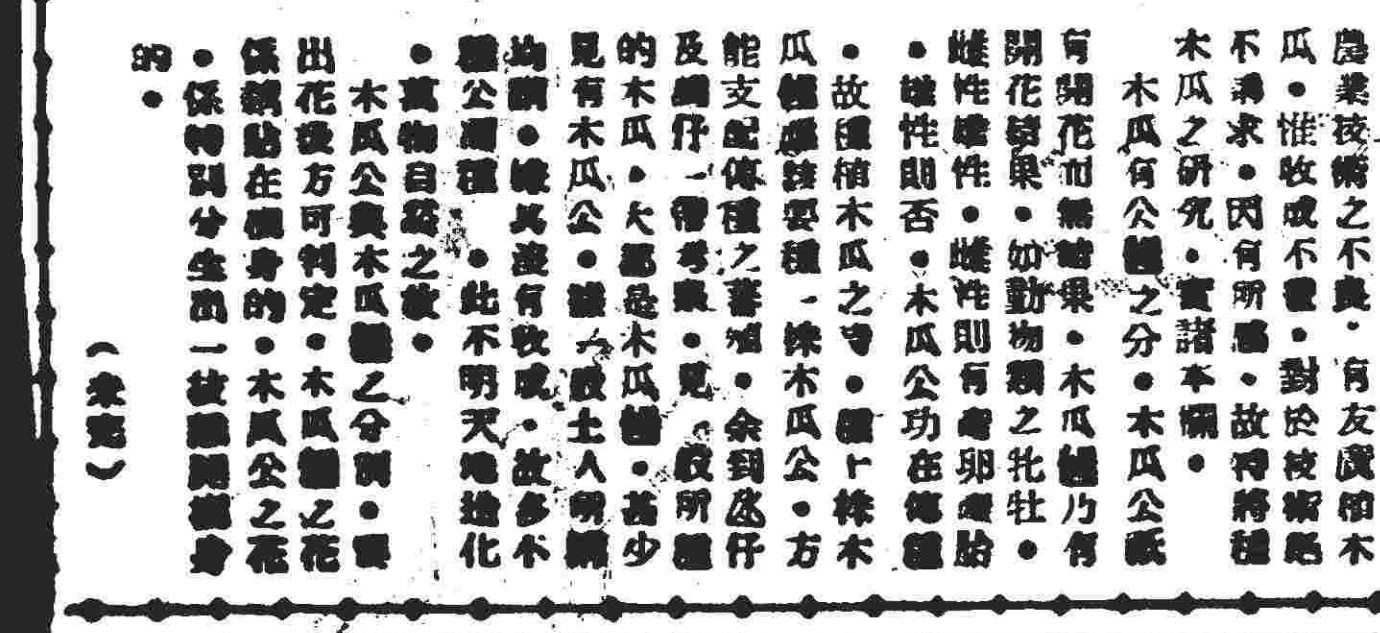 農業技術之不良·有友廣植木
瓜·惟收成不豐·對於技術絕
不講求·閃何所感·故特將種
木瓜之研究·實諸本欄·
木瓜有公乸之分·木瓜公祇
有開花而無結果·木瓜乸乃有
開花結果·如動物類之牝牡·
雌性雄性·雌性則有產卵產胎
·雄性則否·木瓜公功在傳種
·故種植木瓜之時·種十株木
瓜乸應該要種一株木瓜公·方
能支配傳種之蕃殖·余到氹仔
及 仔一帶考察·見一般所種
的木瓜·大都是木瓜乸·甚少
見有木瓜公·據一般土人所講
均謂·嫌其沒有收成·故多不
種公 種·此不明天地造化
·萬物自然之故·
木瓜公與木瓜乸之分別·要
出花後方可判定·木瓜乸之花
係 貼在樹身的·木瓜公之花
·係特別分生出一枝 開離身
的·
（未完）